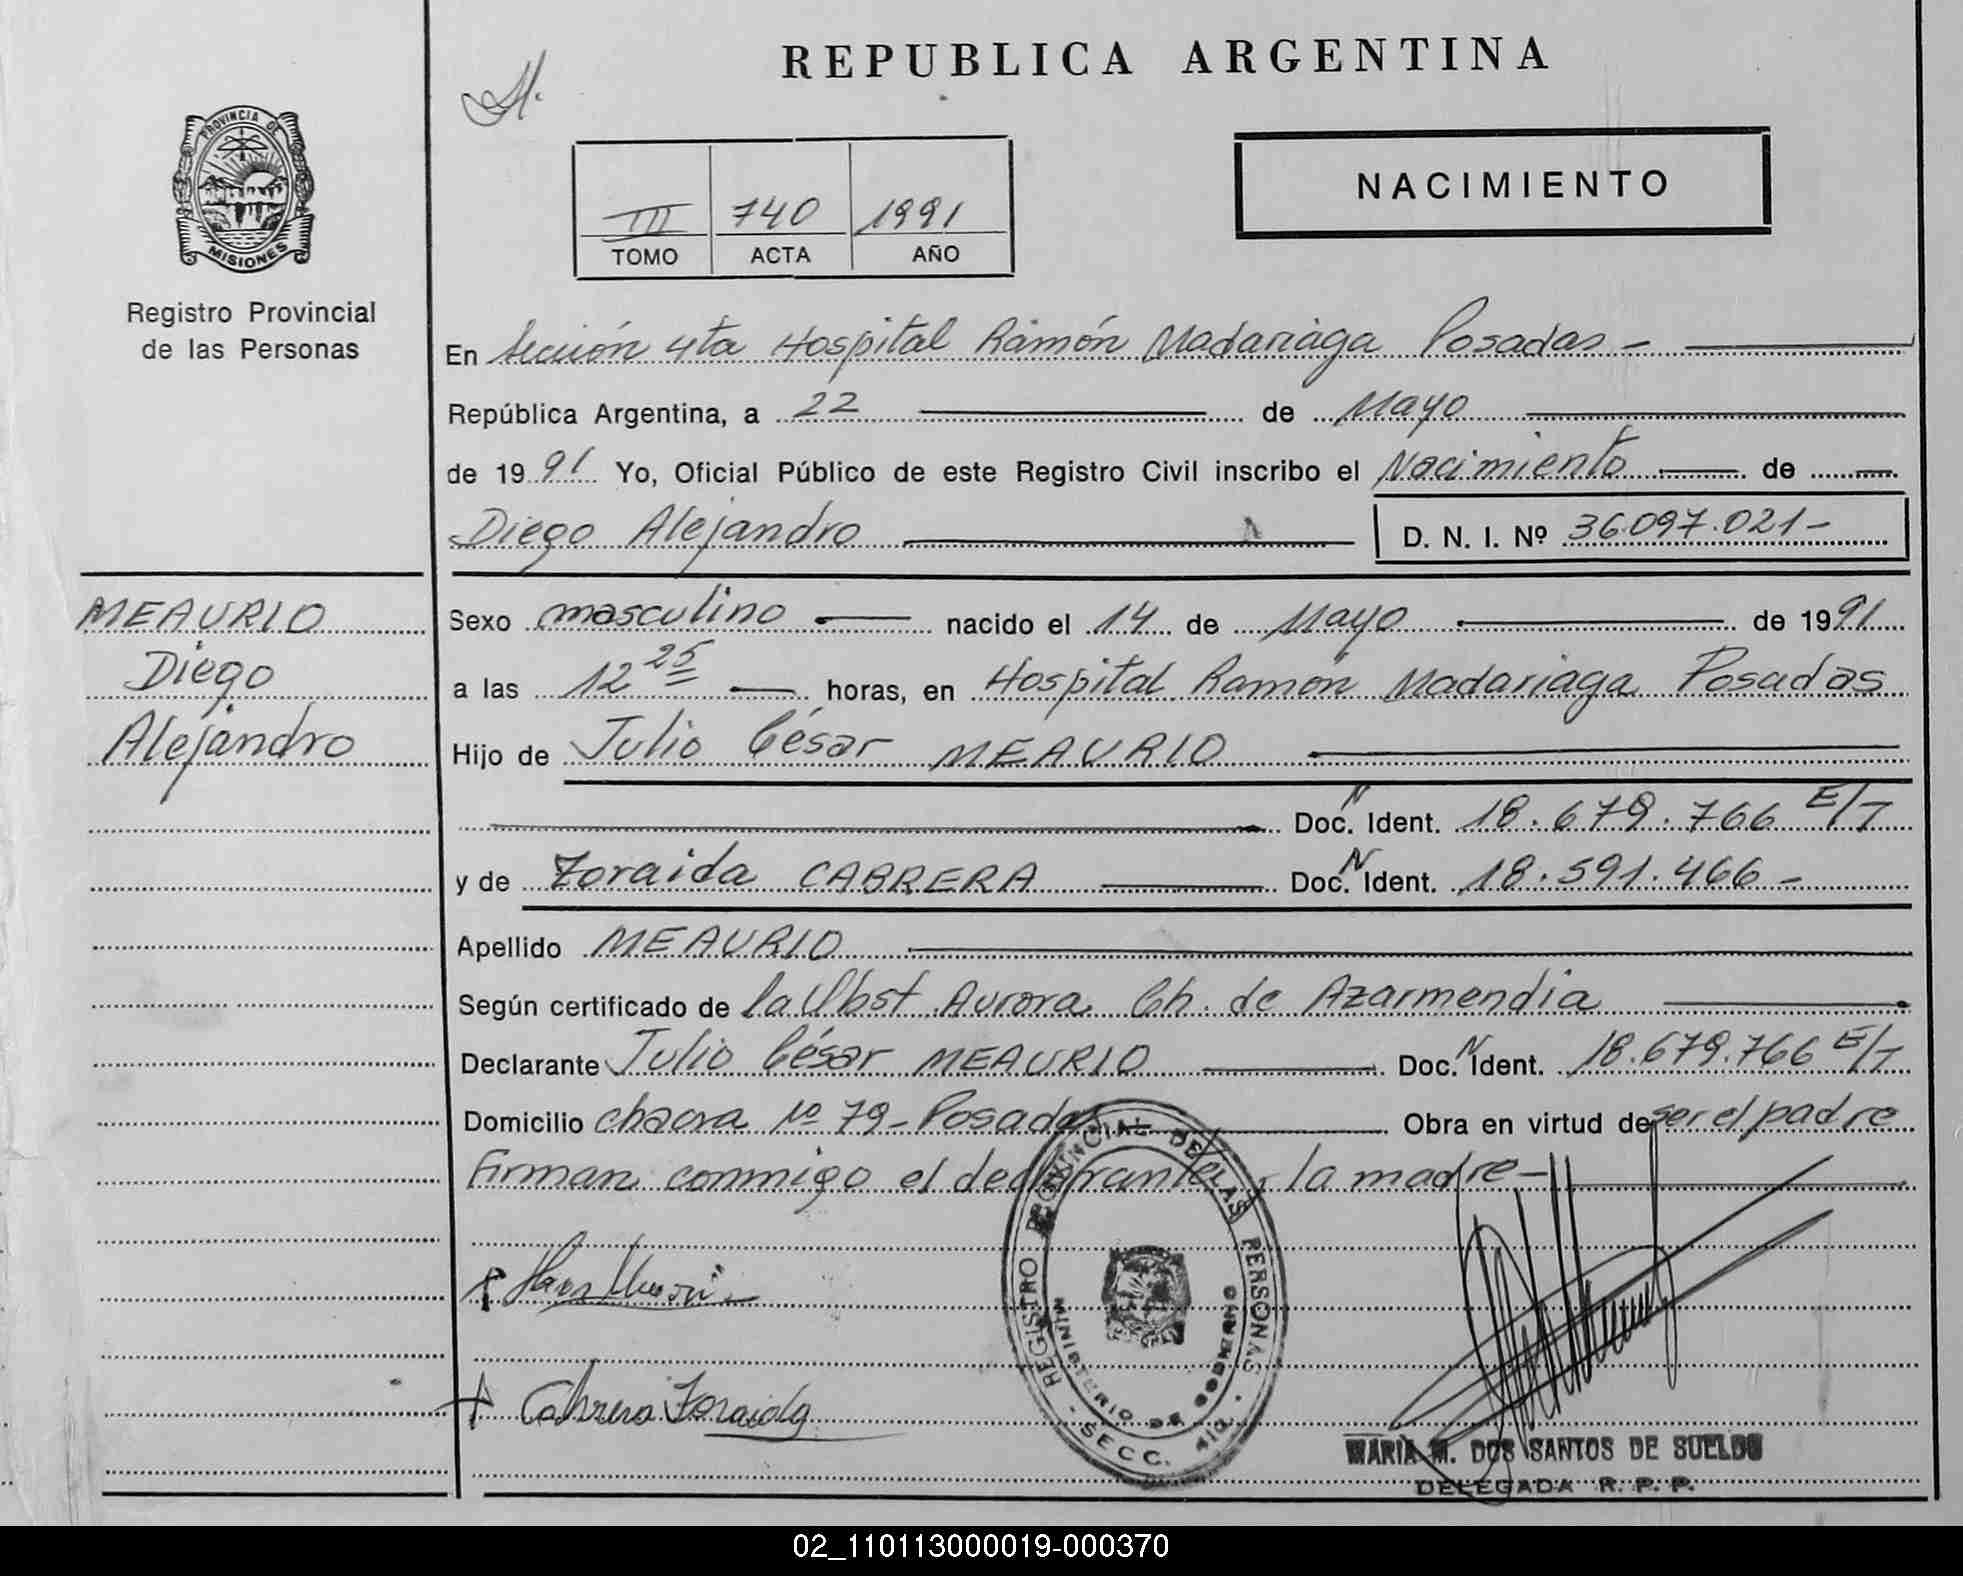 REPUBLICA ARGENTINA
PROVINCIA DE
MISIONES
Registro Provincial
de las Personas
NACIMIENTO
III 740 1991
TOMO ACTA AÑO
En Sección 4ta Hospital Ramón Madariaga Posadas -
República Argentina, a 22 de Mayo
de 1991 Yo, Oficial Público de este Registro Civil inscribo el Nacimiento de
Diego Alejandro D. N. I. Nº 36.097.021-
MEAURIO
Diego
Alejandro
Sexo masculino nacido el 14 de Mayo de 1991
a las 12 25 horas, en Hospital Ramón Madariaga Posadas
Hijo de Julio César MEAURIO
Doc. N Ident. 18.679.766 E/T
y de Zoraida CABRERA Doc. N Ident. 18.591.466-
Apellido MEAURIO
Según certificado de la Obst. Aurora Ch. de Azarmendia
Declarante Julio César MEAURIO Doc. N Ident. 18.679.766 E/T
Domicilio chacra Nº 79- Posadas Obra en virtud de ser el padre
Firman conmigo el declarante y la madre-
REGISTRO PROVINCIAL DE LAS PERSONAS
MINISTERIO DE GOBIERNO
- SECC. 4ta. -
+ Cabrera Zoraida
MARIA M. DOS SANTOS DE SUELDO
DELEGADA R. P. P.
02_110113000019-000370